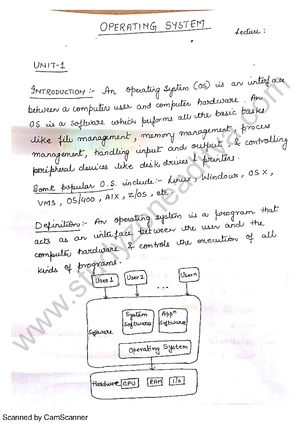 OPERATING SYSTEM
Lecture :
UNIT-1
INTRODUCTION :- An operating System (OS) is an interface
between a computer user and computer hardware. An
OS is a software which performs all the basic tasks
like file management, memory management, process
management, handling input and output & controlling
peripheral devices like disk drives & printers.
Some popular O.S. include:- Linux, Windows, OS X,
VMS, OS/400, AIX, z/OS, etc.
Definition:- An operating system is a program that
acts as an interface between the user and the
computer hardware & controls the execution of all
kinds of programs.
User 1 User 2 ... User n
Software
System Softwares
Appn Software
Operating System
Hardware CPU RAM I/O
Scanned by CamScanner